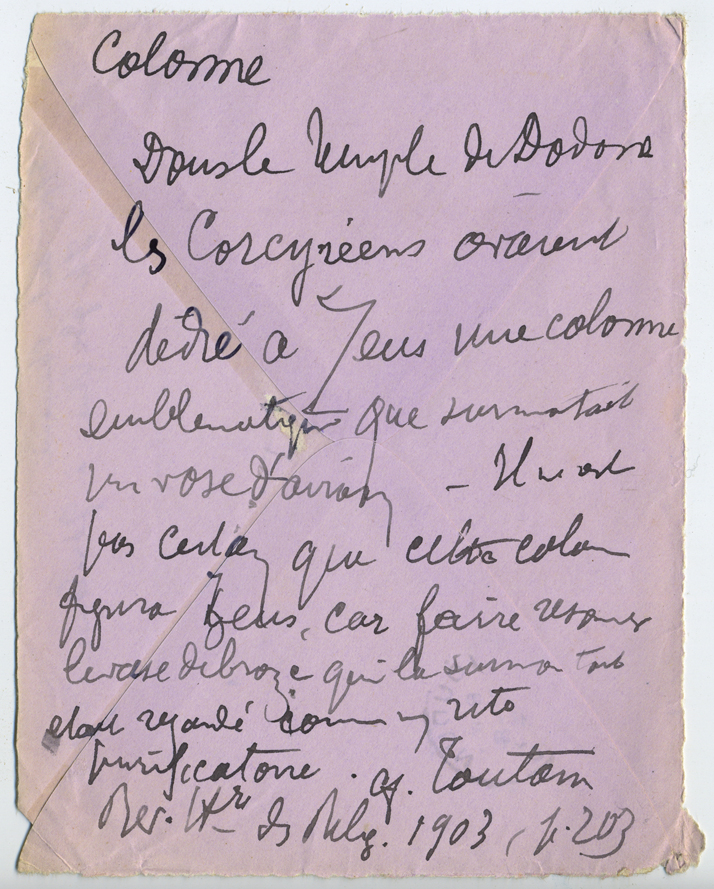 Colonne
Dans le Temple de Dodone
les Corcyréens avaient
dédié a Zeus une colonne
emblematique que surmontait
un vase d'airain – Il n'est
pas certain que cette colonne
figura Zeus, car faire resonner
le vase de bronze qui la surmontait
etait regardé comme un rite
purificatoire. cf. Toutain
Rev. Hre ds Relig. 1903, p. 203